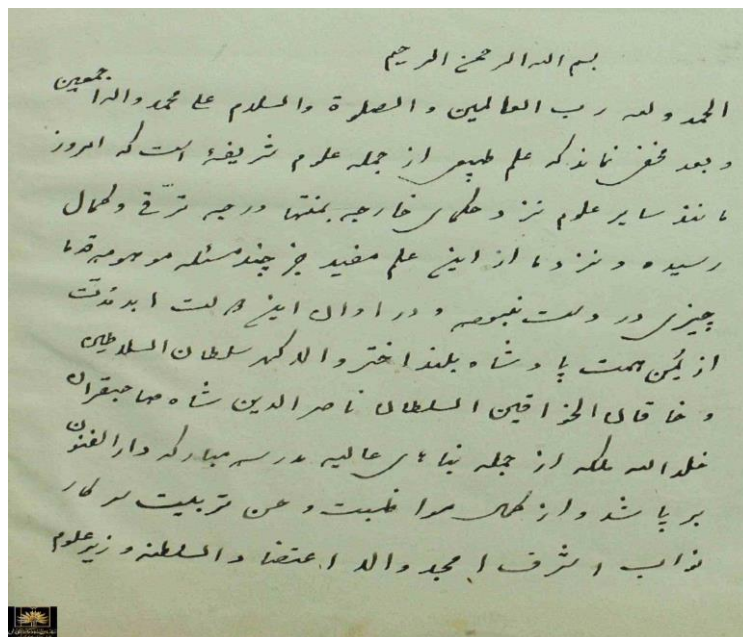 بسم الله الرحمن الرحیم
الحمد لله رب العالمین و الصلوة والسلام علی محمد واله اجمعین
و بعد مخفی نماند که علم طبیعی از جمله علوم شریفهٔ است که امروز
مانند سایر علوم نزد حکمای خارجه بمنتها درجه ترقّی و کمال
رسیده و نزد ما از این علم مفید جز چند مسئله موهومه قدما
چیزی در دست نبوده و در اوان این دولت ابد مدّت
از یُمن همت پادشاه بلند اختر والا گهر سلطان السلاطین
و خاقان الخواقین السلطان ناصر الدین شاه صاحبقران
خلد الله ملکه از جمله بناهای عالیه مدرسه مبارکه دار الفنون
بر پا شد و از کمال مواظبت و حسن تربیت سرکار
نواب اشرف امجد والا اعتضاد السلطنه وزیر علوم